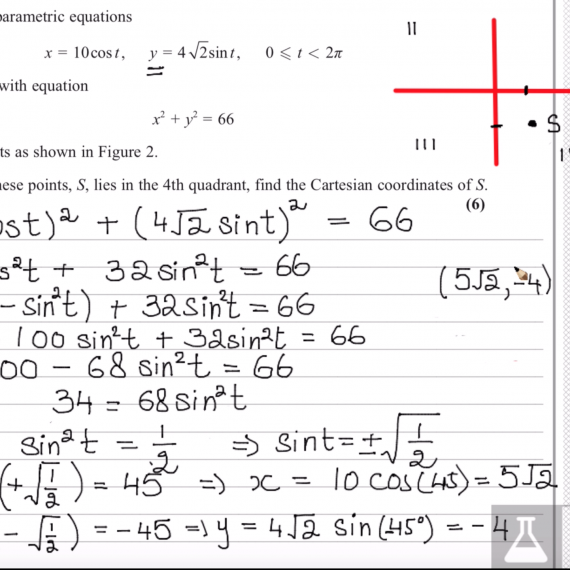 parametric equations
II
x = 10cos t, y = 4√2 sin t, 0 ⩽ t < 2π
with equation
x² + y² = 66
S
ts as shown in Figure 2.
III
hese points, S, lies in the 4th quadrant, find the Cartesian coordinates of S.
(6)
ost)² + (4√2 sint)² = 66
s²t + 32sin²t = 66
(5√2, -4)
- sin²t) + 32sin²t = 66
100 sin²t + 32sin²t = 66
00 - 68 sin²t = 66
34 = 68sin²t
sin²t = 1/2 ⇒ sint = ±√(1/2)
(+√(1/2)) = 45° ⇒ x = 10 cos(45) = 5√2
-√(1/2)) = -45 ⇒ y = 4√2 sin(-45°) = -4